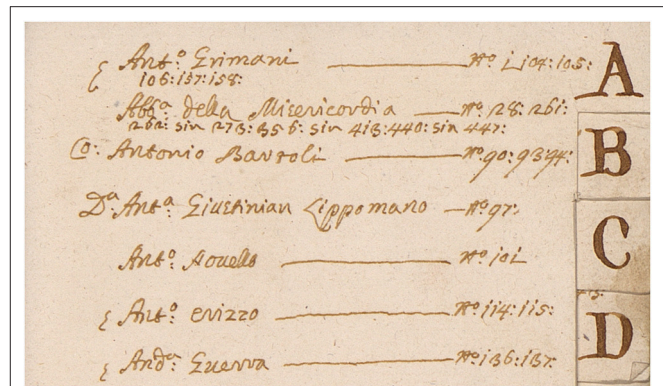 Antº: Grimani — Nº i 104: 105:
106: 157: 158:
A
Abbª della Misericordia — Nº 28: 261:
262: sin 273: 356: sin 413: 440: sin 447:
B
Co: Antonio Bartoli — Nº 90: 93: 94:
Dª: Antª: Giustinian Lippomano — Nº 97:
C
Antº: — Nº 101
Antº: erizzo — Nº 114: 115:
D
Andª: Guerra — Nº 136: 137: